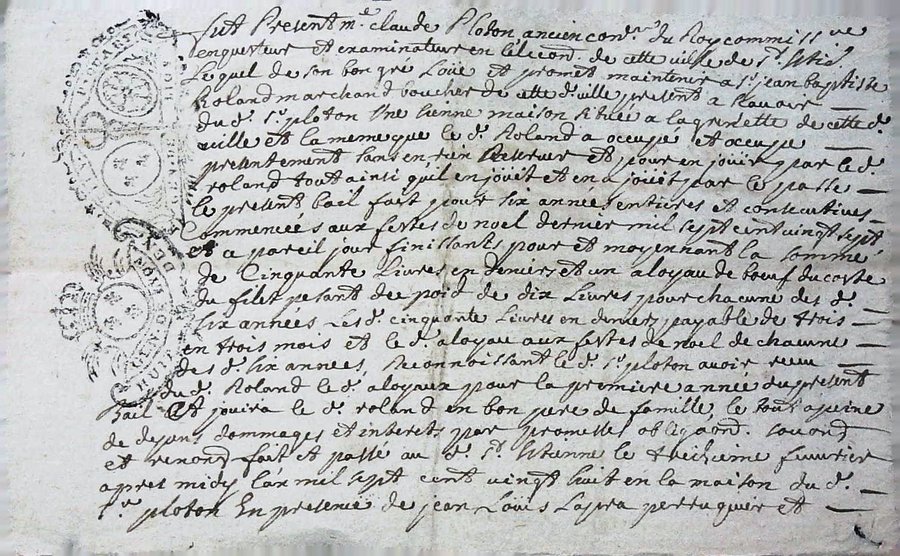 fut Present me claude Ploton ancien conr. du Roy commissre
enquesteur et examinateur en lelecond. de cette ville de St. Etie.
Lequel de son bon gré Loüe et promet maintenir a sr. jean baptiste
Roland marchand boucher de cette d. ville present a scavoir
du d. sr. ploton Une sienne maison située a la grenette de cette d.
ville et la meme que le d. Roland a occupé et occupe
presentement sans en rien Reserver et pour en joüir par le d.
roland tout ainsi quil en joüit et en a joüit par le passe
le present bail fait pour six années entieres et consecutives
Commencées aux festes de noel dernier mil sept cent vingt sept
et a pareil jour finissants pour et moyennant la somme
de Cinquante Livres en deniers et un aloyau de boeuf du coste
du filet pesant de poid de dix Livres pour chacune des d.
six années Les d. cinquante Livres en deniers payable de trois
en trois mois et le d. aloyau aux festes de noel de chacune
des d. six années, Reconnoissant le d. sr. ploton avoir receu
du d. Roland le d. aloyaux pour la premiere année du present
Bail et jouira le d. roland en bon pere de famille le tout a peine
de depens dommages et interets par promesses obligaond.
et renond. fait et passe au d. St. Etienne le treizieme fevvrier
apres midy l'an mil sept cent vingt huit en la maison du d.
sr. ploton En presence de jean Loüis Lapra perruquier et